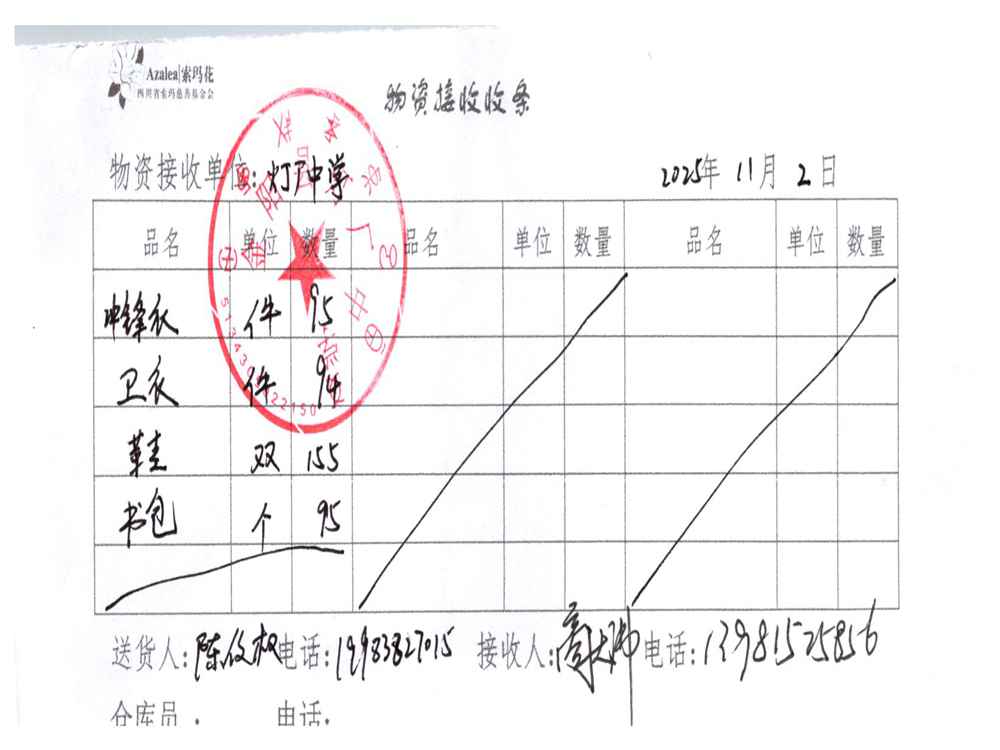 Azalea 索玛花
四川省索玛慈善基金会
物资接收收条
物资接收单位:灯厂中学
2025年 11月 2日
品名 单位 数量 品名 单位 数量 品名 单位 数量
冲锋衣 件 95
卫衣 件 94
鞋 双 155
书包 个 95
送货人: 电话:19983827015 接收人: 电话:13981525856
仓库员: 电话: